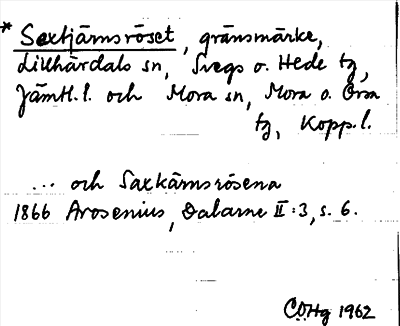 * Saxtjärnsröset, gränsmärke,
Lillhärdals sn, Svegs o. Hede tg,
Jämtl.l. och Mora sn, Mora o. Orsa
tg, Kopp.l.
... och Saxkärnsrösena
1866 Arosenius, Dalarne II:3, s. 6.
CÖHg 1962